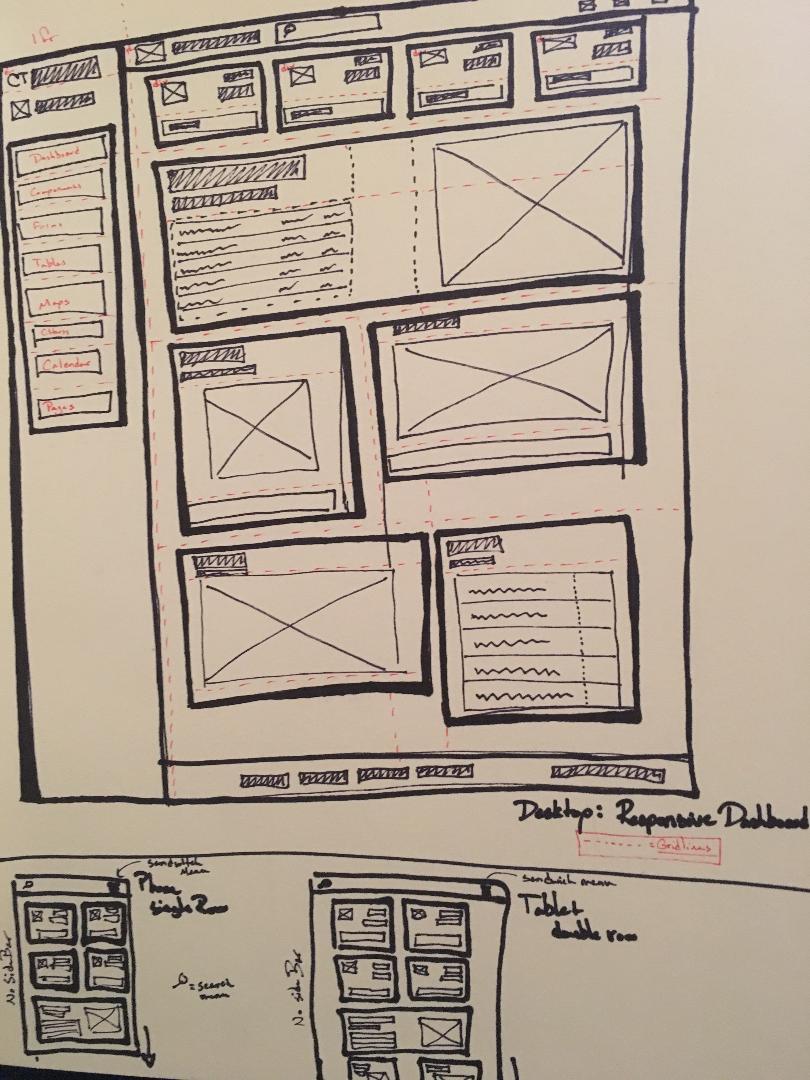 1 fr
CT
Dashboard
Components
Forms
Tables
Maps
Charts
Calendar
Pages
Desktop: Responsive Dashboard
= Gridlines
sandwitch
Menu
Phone
single Row
No Side Bar
= search
menu
sandwich menu
Tablet
double row
No side Bar